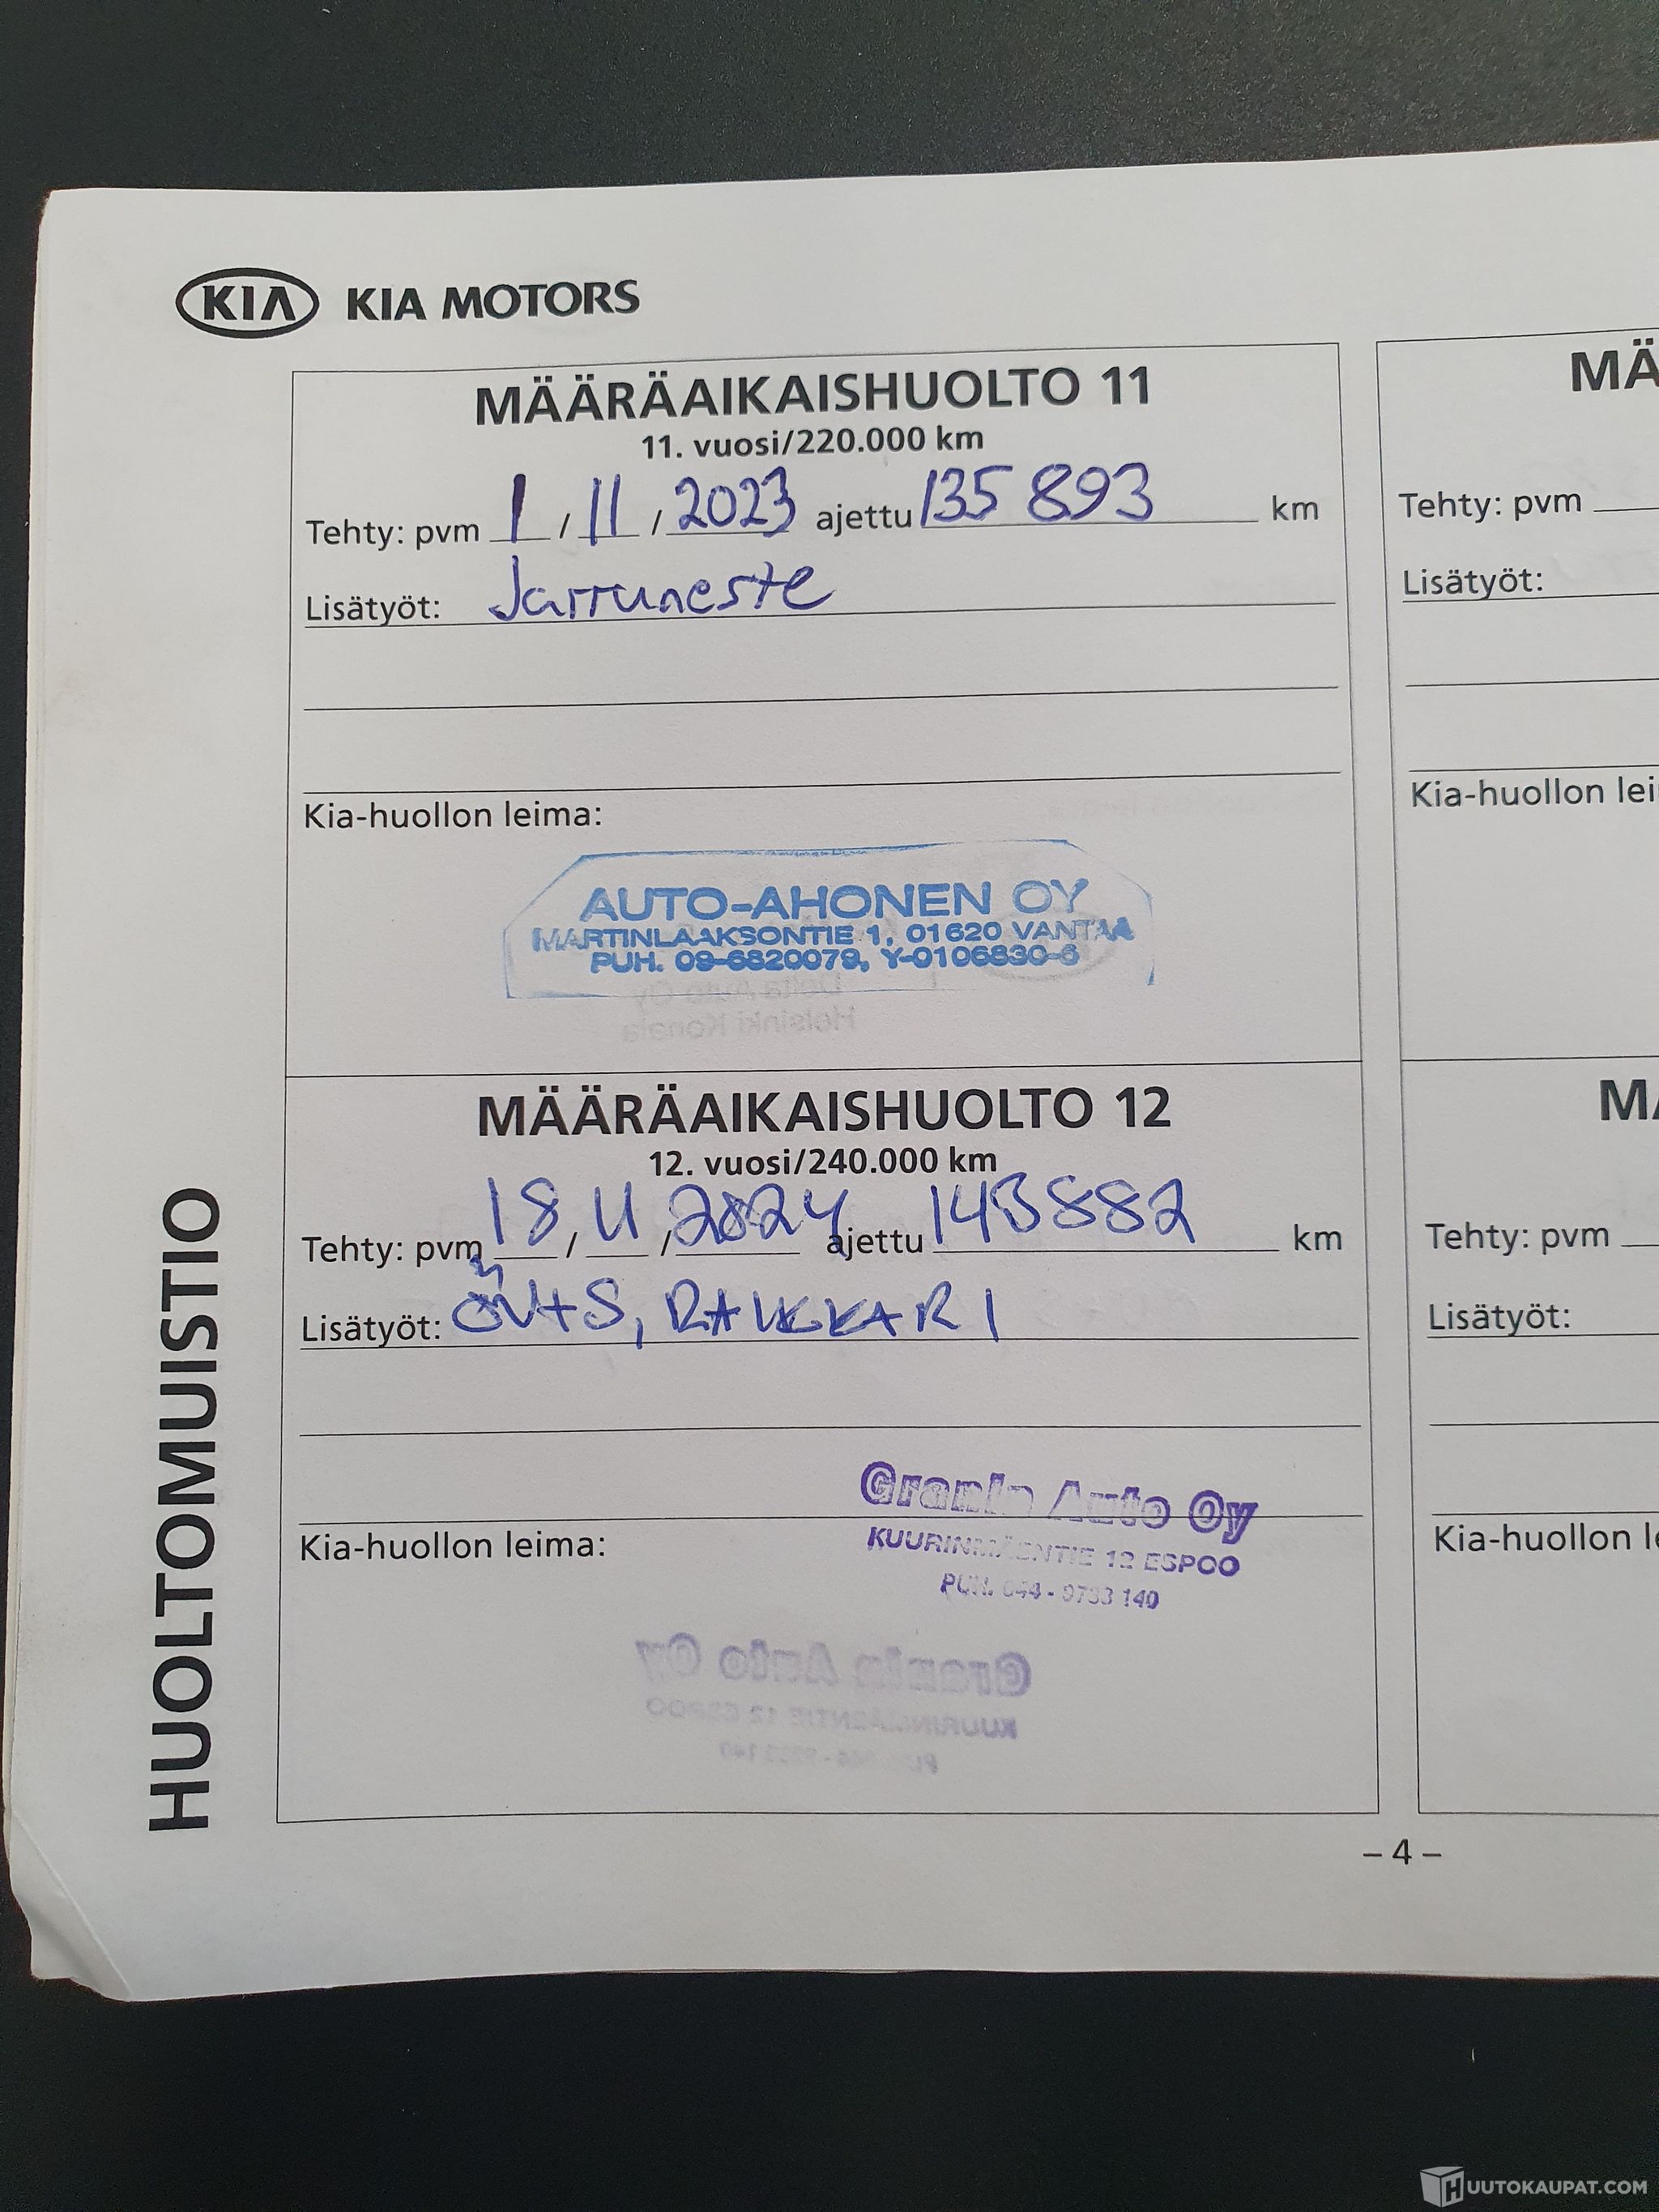 KIA KIA MOTORS
MÄÄRÄAIKAISHUOLTO 11
11. vuosi/220.000 km
Tehty: pvm 1 / 11 / 2023 ajettu 135 893 km
Lisätyöt: Jarruneste
Kia-huollon leima:
AUTO-AHONEN OY
MARTINLAAKSONTIE 1, 01620 VANTAA
PUH. 09-6820079, Y-0106830-6
Delta Auto Oy
Helsinki Konala
MÄÄRÄAIKAISHUOLTO 12
12. vuosi/240.000 km
Tehty: pvm 18 / 11 / 2024 ajettu 143882 km
Lisätyöt: ÖV+S, RAIKKARI
Kia-huollon leima:
Granin Auto Oy
KUURINMÄENTIE 12 ESPOO
PUH. 044 - 9733 140
Granin Auto Oy
KUURINMÄENTIE 12 ESPOO
HUOLTOMUISTIO
MÄ
Tehty: pvm
Lisätyöt:
Kia-huollon lei
MÄ
Tehty: pvm
Lisätyöt:
Kia-huollon le
– 4 –
HUUTOKAUPAT.COM